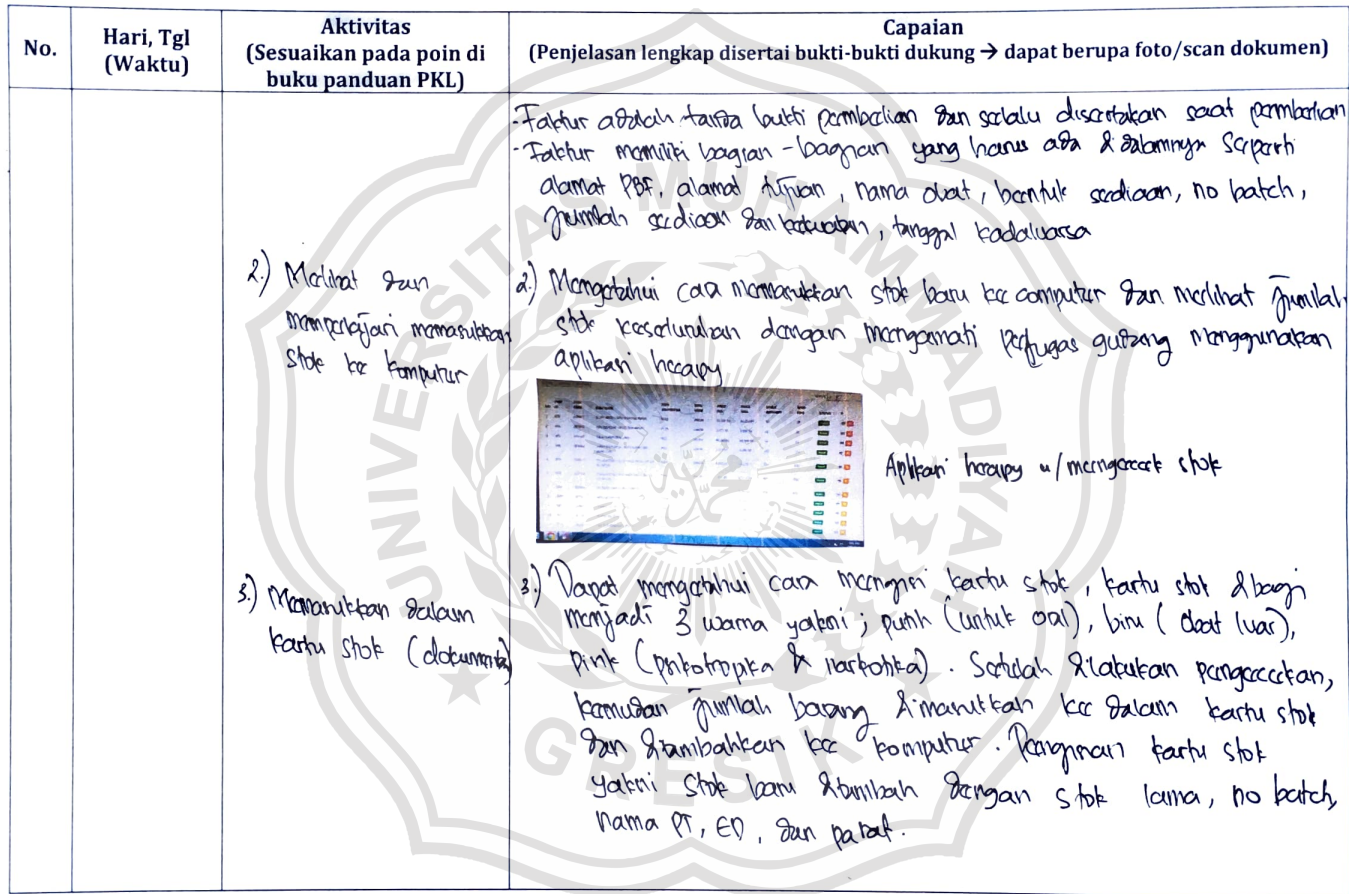 No.
Hari, Tgl
(Waktu)
Aktivitas
(Sesuaikan pada poin di
buku panduan PKL)
Capaian
(Penjelasan lengkap disertai bukti-bukti dukung → dapat berupa foto/scan dokumen)
- Faktur adalah tanda bukti pembelian dan selalu disertakan saat pembelian
- Faktur memiliki bagian-bagian yang harus ada didalamnya seperti
alamat PBF, alamat tujuan, nama obat, bentuk sediaan, no batch,
jumlah sediaan dan kekuatan, tanggal kadaluarsa
2.) Melihat dan
mempelajari memasukkan
stok ke komputer
2.) Mengetahui cara memasukkan stok baru ke computer dan melihat jumlah
stok keseluruhan dengan mengamati petugas gudang menggunakan
aplikasi heapy
Aplikasi heapy u/ mengecek stok
3.) Memasukkan dalam
kartu stok (dokumentasi)
3.) Dapat mengetahui cara mengisi kartu stok, kartu stok dibagi
menjadi 3 warna yakni; putih (untuk oral), biru (obat luar),
pink (psikotropika & narkotika). Setelah dilakukan pengecekan,
kemudian jumlah barang dimasukkan ke dalam kartu stok
dan ditambahkan ke komputer. Pengisian kartu stok
yakni stok baru ditambah dengan stok lama, no batch,
nama PT, ED, dan paraf.
UNIVERSITAS MUHAMMADIYAH
GRESIK